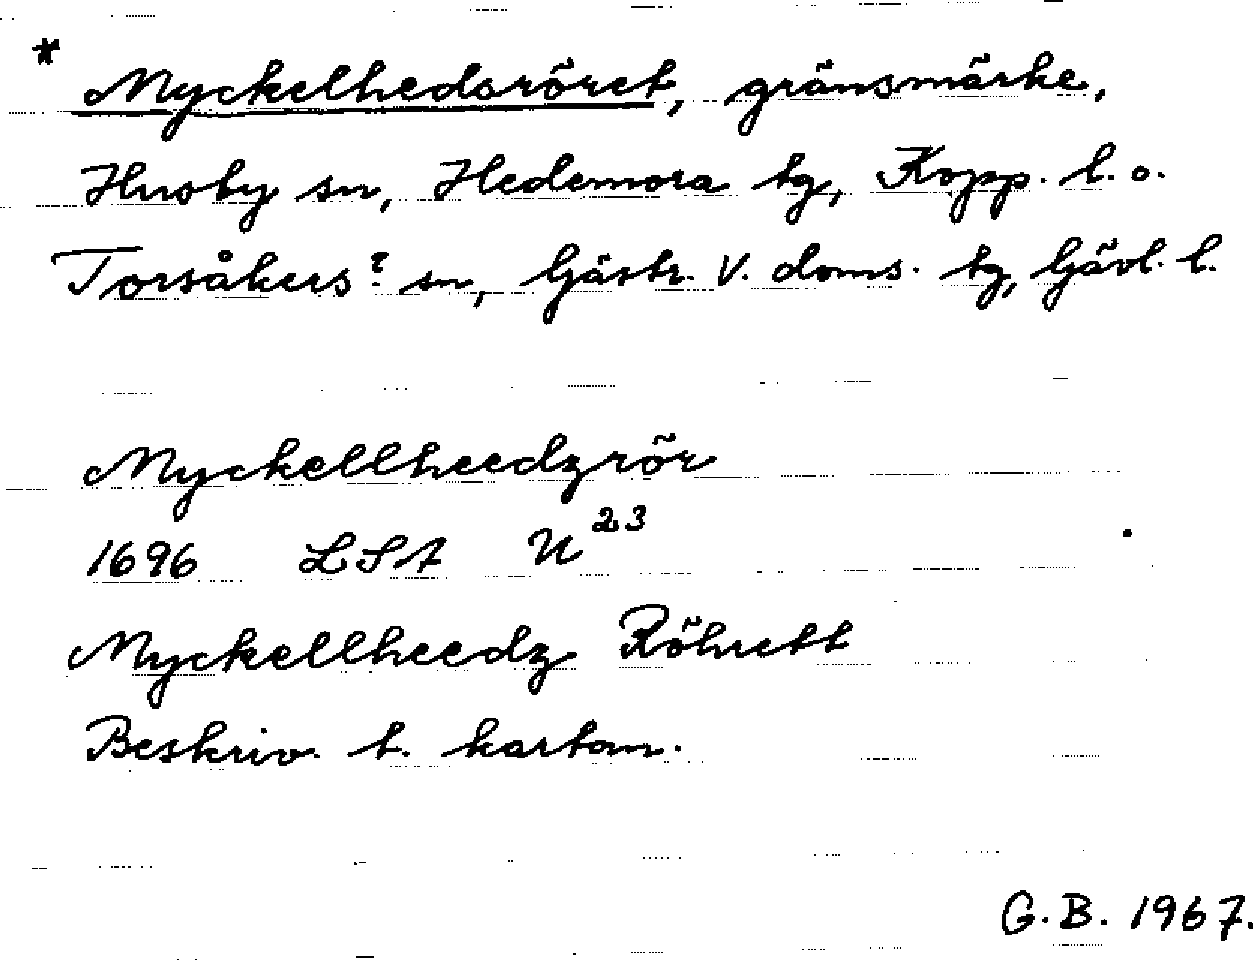 * Myckelhedsröret, gränsmärke,
Husby sn, Hedemora tg, Kopp. l. o.
Torsåkers? sn, Gästr. V. doms. tg, Gävl. l.
Myckellheedzrör
1696 LSA U²³
Myckellheedz Röhrett
Beskriv. t. kartan.
G.B. 1967.